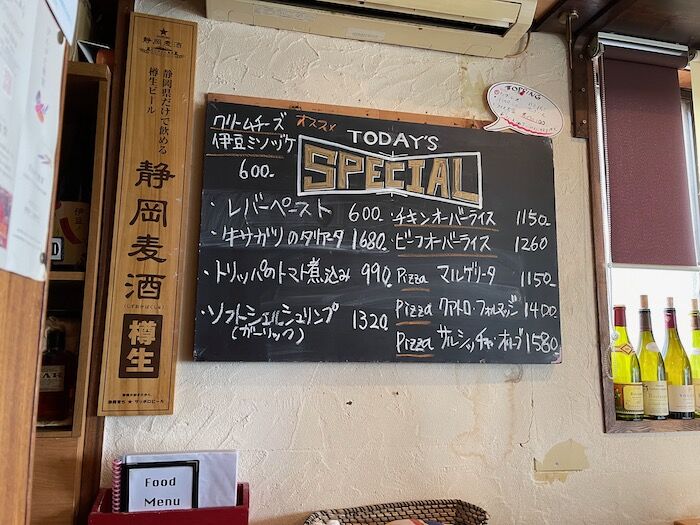 静岡麦酒
静岡県だけで飲める
樽生ビール
静岡麦酒
(しずおかばくしゅ)
樽生
静岡育ち ★ サッポロビール
クリームチーズ
オススメ
伊豆ミソヅケ
600-
TODAY'S
SPECIAL
・レバーペースト 600-
・牛サガリのタリアータ 1680-
・トリッパのトマト煮込み 990-
・ソフトシェルシュリンプ 1320
(ガーリック)
・チキンオーバーライス 1150
・ビーフオーバーライス 1260
Pizza マルゲリータ 1150-
Pizza クアトロ・フォルマッジ 1400-
Pizza サルシッチャ・オリーブ 1580
Food
Menu